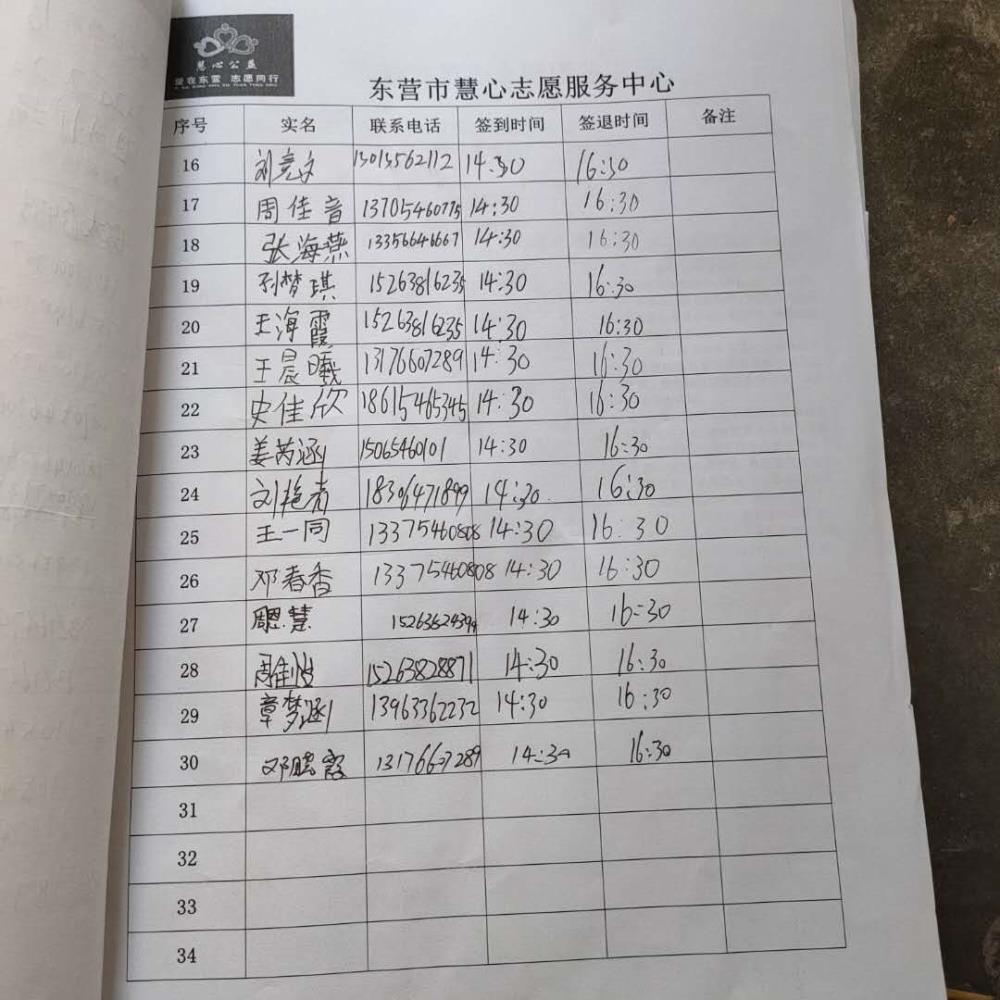 慧心公益
爱在东营 志愿同行
东营市慧心志愿服务中心
序号 实名 联系电话 签到时间 签退时间 备注
16 刘亮文 13013562112 14:30 16:30
17 周佳音 13705460775 14:30 16:30
18 张海燕 13356646667 14:30 16:30
19 孙梦琪 15263816235 14:30 16:30
20 王海霞 15263816235 14:30 16:30
21 王晨曦 13176607289 14:30 16:30
22 史佳欣 18615465345 14:30 16:30
23 姜芮涵 15065460101 14:30 16:30
24 刘艳青 18306471899 14:30 16:30
25 王一同 13375460808 14:30 16:30
26 邓春香 13375460808 14:30 16:30
27 14:30 16=30
28 15263828871 14:30 16:30
29 章梦涵 13963362232 14:30 16:30
30 13176607289 14:30 16:30
31
32
33
34